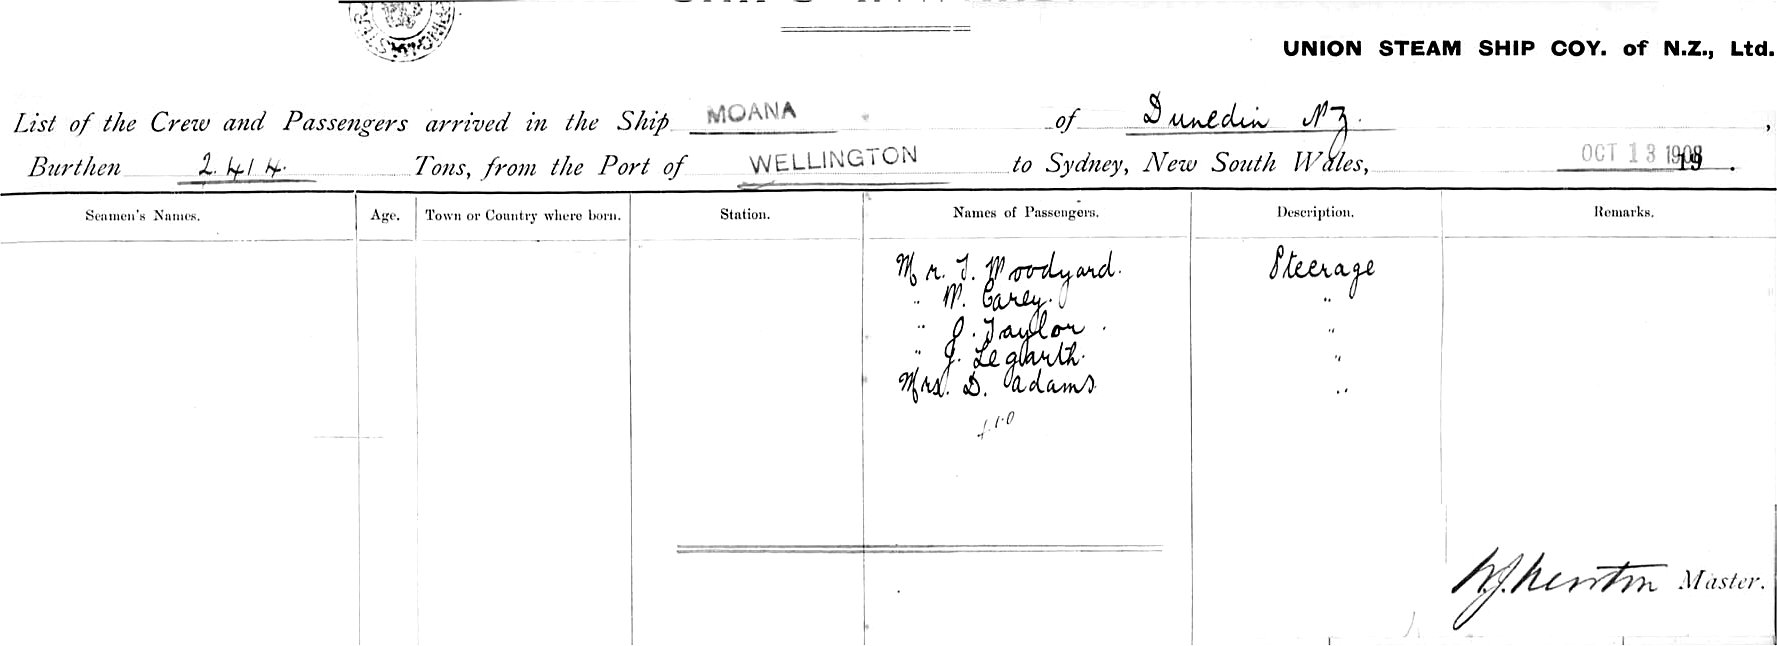 UNION STEAM SHIP COY. of N.Z., Ltd.
List of the Crew and Passengers arrived in the Ship MOANA of Dunedin NZ.,
Burthen 2.414. Tons, from the Port of WELLINGTON to Sydney, New South Wales, OCT 13 1908 19 .
Seamen's Names. Age. Town or Country where born. Station. Names of Passengers. Description. Remarks.
Mr. T. Woodyard. Steerage
" W. Carey. "
" J. Taylor "
" J. Legarth. "
Mrs. D. Adams "
Master.